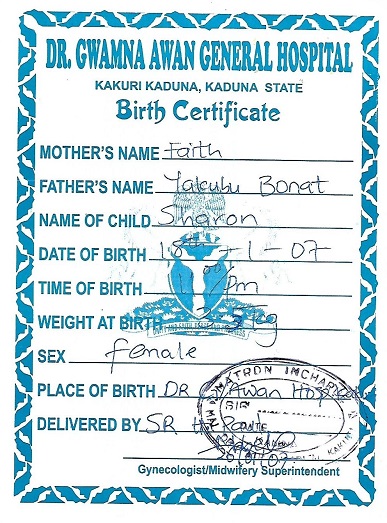 DR. GWAMNA AWAN GENERAL HOSPITAL
KAKURI KADUNA, KADUNA STATE
Birth Certificate
MOTHER'S NAME Faith
FATHER'S NAME Yakubu Bonat
NAME OF CHILD Sharon
DATE OF BIRTH 18th - 1 - 07
TIME OF BIRTH pm
WEIGHT AT BIRTH kg
SEX female
PLACE OF BIRTH DR G. Awan Hospital
MATRON INCHARGE
DELIVERED BY SR
Gynecologist/Midwifery Superintendent